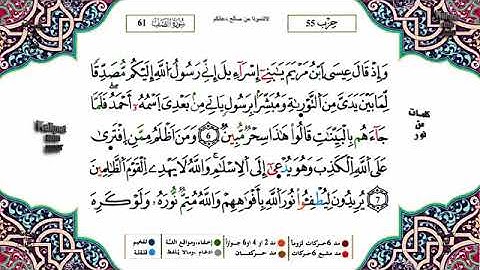 حزب 55
لاتنسونا من صالح دعائكم
سورة الصف 61
وَإِذْ قَالَ عِيسَى ٱبْنُ مَرْيَمَ يَٰبَنِىٓ إِسْرَٰٓءِيلَ إِنِّى رَسُولُ ٱللَّهِ إِلَيْكُم مُّصَدِّقًا
لِّمَا بَيْنَ يَدَىَّ مِنَ ٱلتَّوْرَىٰةِ وَمُبَشِّرًۢا بِرَسُولٍ يَأْتِى مِنۢ بَعْدِى ٱسْمُهُۥٓ أَحْمَدُ فَلَمَّا
جَآءَهُم بِٱلْبَيِّنَٰتِ قَالُوا۟ هَٰذَا سِحْرٌ مُّبِينٌ 6 وَمَنْ أَظْلَمُ مِمَّنِ ٱفْتَرَىٰ
عَلَى ٱللَّهِ ٱلْكَذِبَ وَهُوَ يُدْعَىٰٓ إِلَى ٱلْإِسْلَٰمِ وَٱللَّهُ لَا يَهْدِى ٱلْقَوْمَ ٱلظَّٰلِمِينَ
7 يُرِيدُونَ لِيُطْفِـُٔوا۟ نُورَ ٱللَّهِ بِأَفْوَٰهِهِمْ وَٱللَّهُ مُتِمُّ نُورِهِۦ وَلَوْ كَرِهَ
كلمات
من
نور
مد 6 حركات لزوماً
مد 2 او 4 او 6 جوازاً
إخفاء، ومواقع الغنة
تفخيم
مد مشبع 6 حركات
مد حركتان
ادغام، ومالا يلفظ
قلقلة